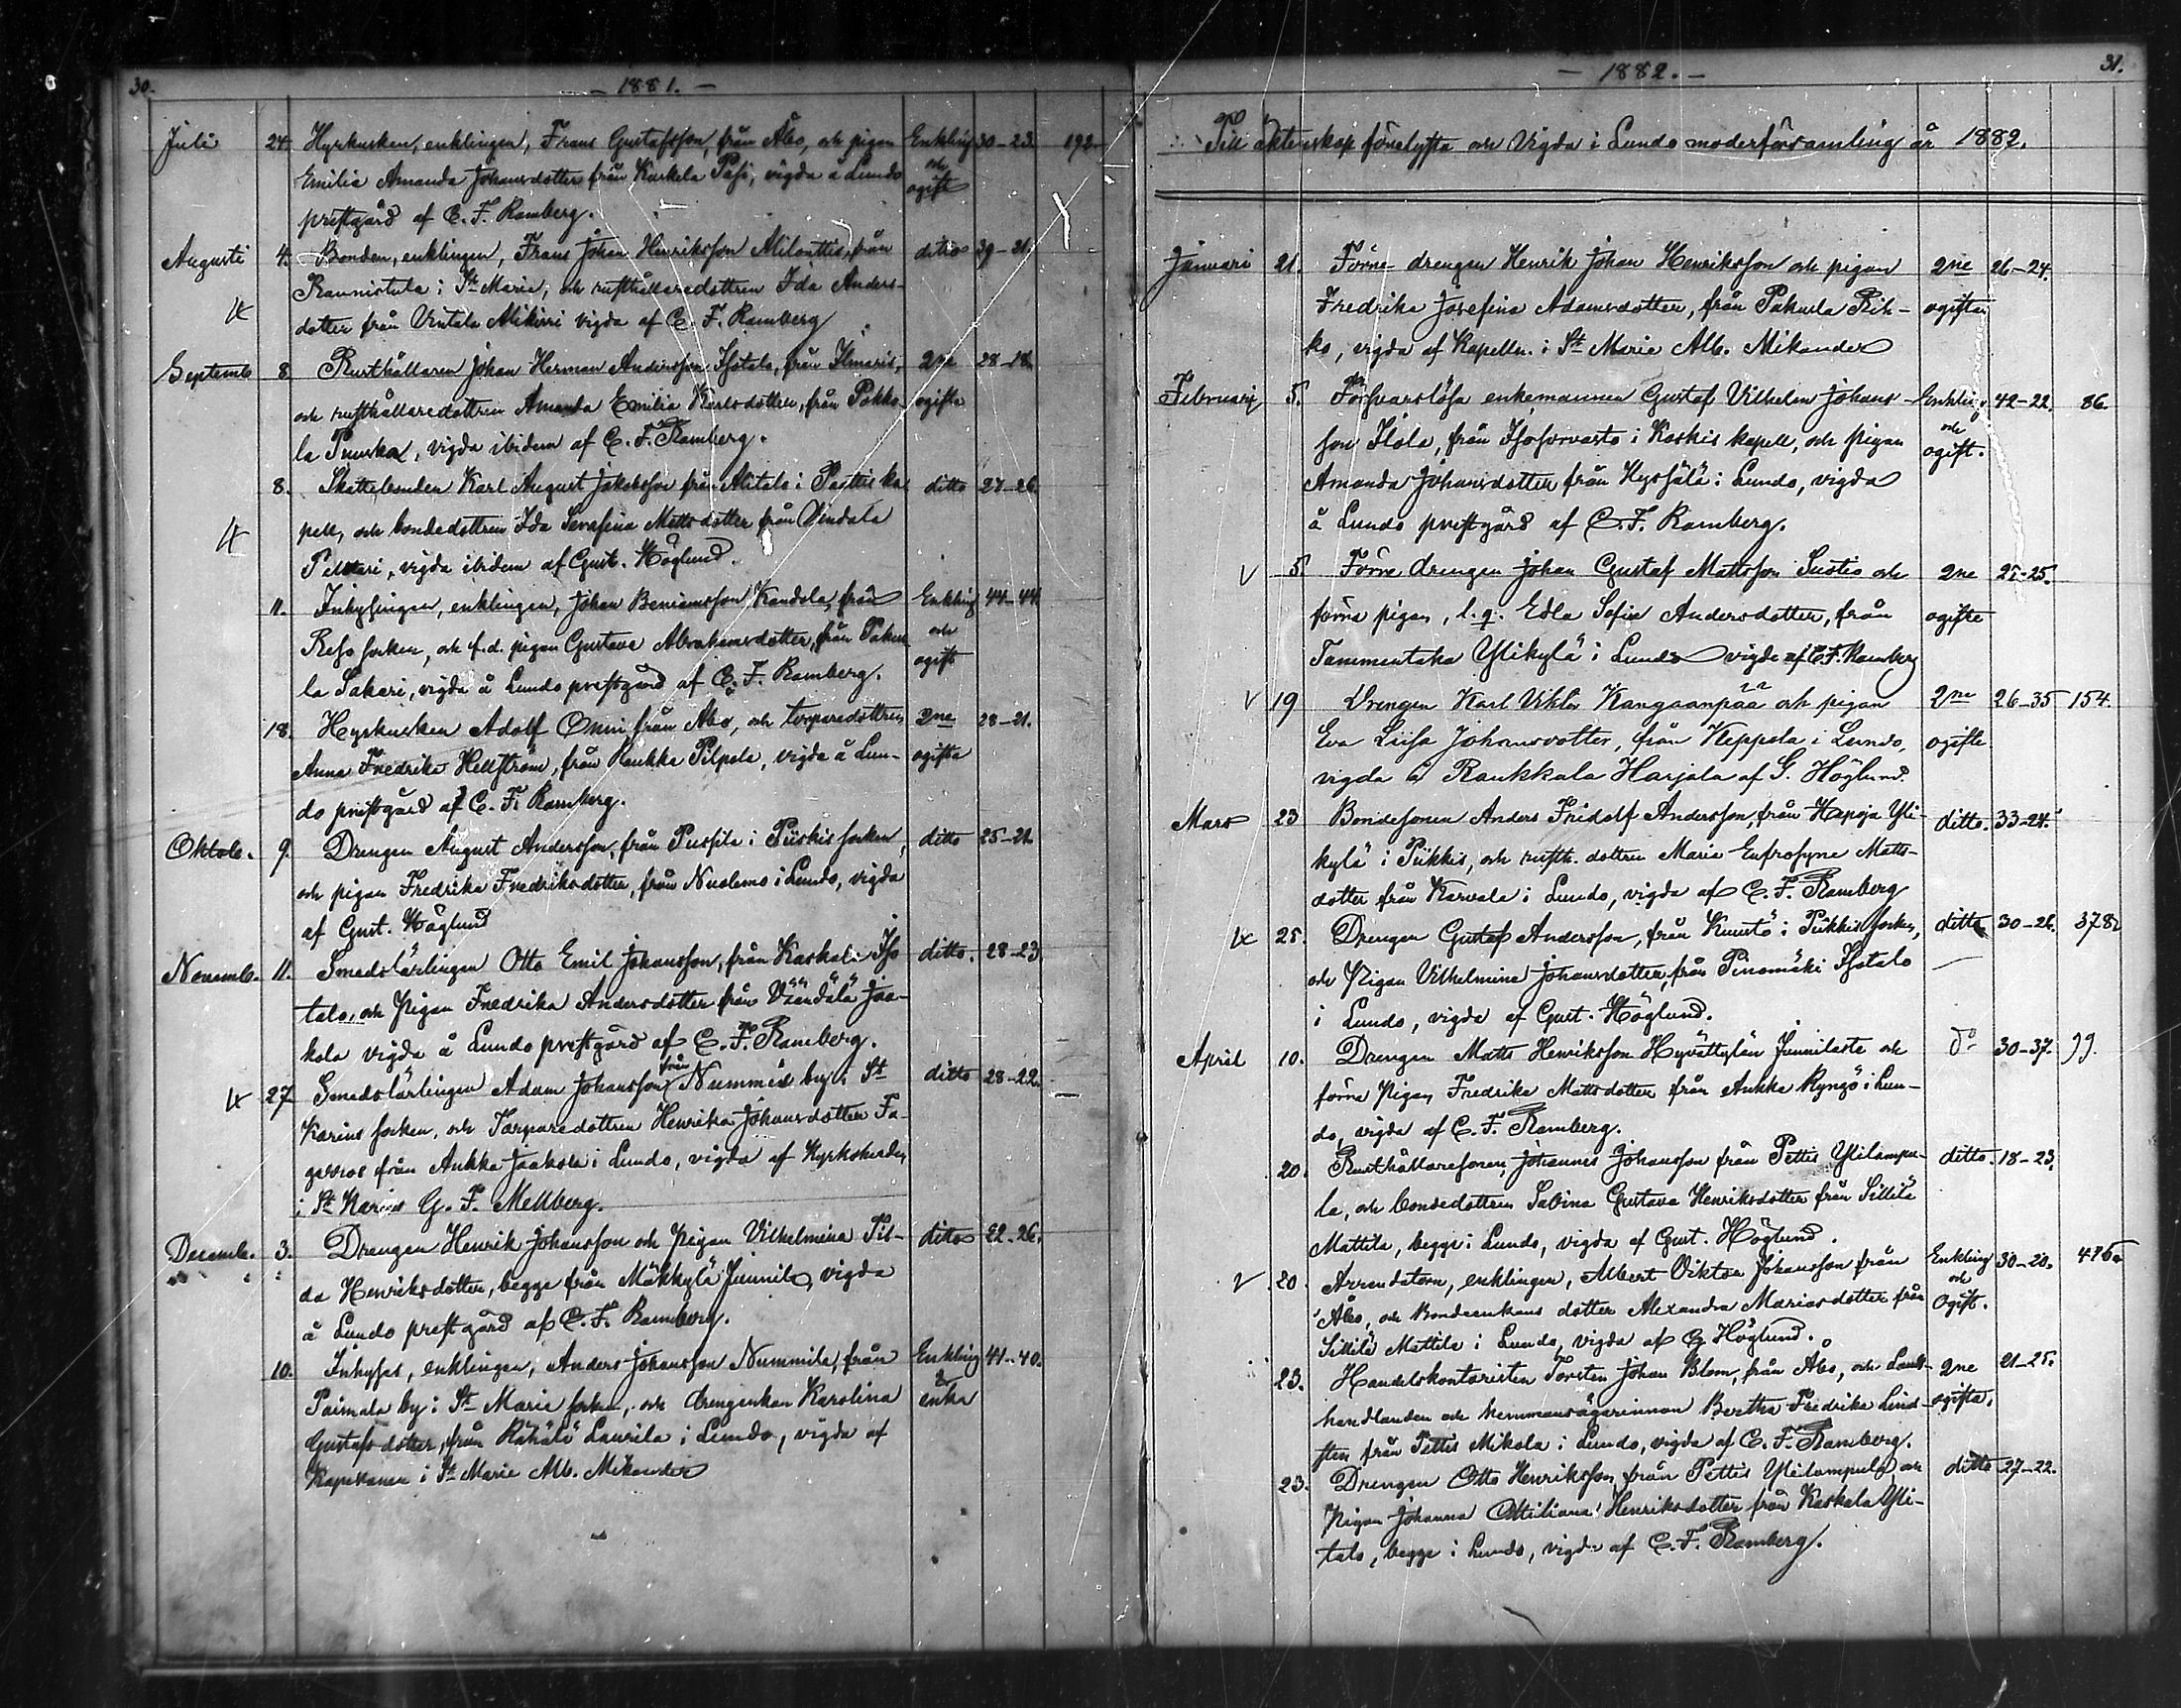 30.
- 1881. -
Juli 24. Hyrkusken, enklingen, Frans Gustafsson, från Åbo, och pigan Enkling 30-23. 192.
Emilia Amanda Johansdotter från Kurkela Pasi, vigda å Lundo och
prestgård af C. F. Ramberg. ogift
Augusti 4. Bonden, enklingen, Frans Johan Henriksson från ditto 39-21.
Raunistula i St Marie, och rusthållaredottren Ida Anders-
dotter från Alikirri vigda af C. F. Ramberg
Septemb. 8. Rusthållaren Johan Herman Andersson Isotalo, från Ilmaris, 2ne
och rusthållaredottren Amanda Emilia Karlsdotter, från Pokko- ogifta
la vigda ibidem af C. F. Ramberg.
8. Skattebonden Karl August Jakobsson från Alitalo i ka- ditto 27-26
pell, och bondedottren Ida Serafina Mattsdotter från
vigda ibidem af Gust. Höglund.
11. Inhysingen, enklingen, Johan från Enkling 44-44
Reso socken, och f.d. pigan Gustava Abrahamsdotter, från Pakur- och
la Sakari, vigda å Lundo prestgård af C. F. Ramberg. ogift
18. Hyrkusken Adolf från Åbo, och torparedottren 2ne 28-21.
Anna Fredrika Hellström, från Raukka Pilpola, vigda å Lun- ogifta
do prestgård af C. F. Ramberg.
Oktob. 9. Drengen August Andersson, från i Piikkis socken, ditto 25-21.
och pigan Fredrika Fredriksdotter, från Nuolemo i Lundo, vigda
af Gust. Höglund
Novemb. 11. Smedslärlingen Otto Emil Johansson, från Kaskala Iso ditto. 28-23.
talo, och Pigan Fredrika Andersdotter från Väändälä Jaa-
kola vigda å Lundo prestgård af C. F. Ramberg.
från
27 Smedslärlingen Adam Johansson Nummis by i St ditto 28-22.
Karins socken, och Torparedottren Henrika Johansdotter Fa-
gerros från Aukka Jaakola i Lundo, vigda af Kyrkoherden
i St Karins G. F. Mellberg.
Decemb. 3. Drengen Henrik Johansson och Pigan Vilhelmina Til- ditto 22-26.
da Henriksdotter, begge från Mäkkylä Junnila, vigda
å Lundo prestgård af C. F. Ramberg.
10. Inhyses, enklingen, Anders Johansson Nummila, från Enkling 41-40.
Paimala by i St Marie socken, och drengenkan Karolina &
Gustafsdotter, från Rähälä Laurila i Lundo, vigda af enka
Kapellanen i St Marie Alb. Mikander
- 1882. -
31.
Till äktenskap förelysta och Vigda i Lundo moderförsamling år 1882.
Januari 21. Förne drengen Henrik Johan Henriksson och pigan 2ne 26-24.
Fredrika Josefina Adamsdotter, från Pakurla Rih- ogifta
ko, vigda af Kapelln. i St Marie Alb. Mikander
Februarij 5. Försvarslösa enkemannen Gustaf Vilhelm Johans- Enkling 42-22. 86.
son Isola, från i Koskis kapell, och pigan och
Amanda Johansdotter från Hyssälä i Lundo, vigda ogift.
å Lundo prestgård af C. F. Ramberg.
V 5. Förne drengen Johan Gustaf Mattsson Sustio och 2ne 25-25.
förna pigan, l. q. Edla Sofia Andersdotter, från ogifte
Tammentaka Ylikylä i Lundo vigda af C. F. Ramberg
V 19 Drengen Karl Viktor Kangaanpää och pigan 2ne 26-35 154.
Eva Lisa Johansdotter, från Keppola i Lundo, ogifte
vigda å Raukkala Harjala af G. Höglund.
Mars 23 Bondesonen Anders Fridolf Andersson, från Hapoja Yli- ditto. 33-24.
kylä i Piikkis, och rusth. dottren Maria Eufrosyne Matts-
dotter från Karvala i Lundo, vigda af C. F. Ramberg
25. Drengen Gustaf Andersson, från Kuustö i Piikkis socken, ditto 30-21. 378
och Pigan Vilhelmina Johansdotter, från Pinomäki Isotalo
i Lundo, vigda af Gust. Höglund.
April 10. Drengen Matts Henriksson Hyvättylän Junnilasta och do 30-37. 99.
förna Pigan Fredrika Mattsdotter från Aukka Ryngö i Lun-
do, vigda af C. F. Ramberg.
20. Rusthållaresonen, Johannes Johansson från Pettis Ylilampu- ditto. 18-23.
la, och bondedottren Sabina Gustava Henriksdotter från Sillilä
Mattila, begge i Lundo, vigda af Gust. Höglund.
V 20. Arrendatorn, enklingen, Albert Viktor Johansson från Enkling 30-20.
Åbo, och Bondeenkans dotter Alexandra Mariasdotter från och
Sillilä Mattila i Lundo, vigda af G. Höglund. ogift.
23. Handelskontoristen Torsten Johan Blom, från Åbo, och Landt- 2ne 21-25.
handlanden och hemmansägarinnan Bertha Fredrika Lind- ogifta.
sten från Pettis Mikola i Lundo, vigda af C. F. Ramberg.
23. Drengen Otto Henriksson från Pettis Ylilampula, och ditto 27-22.
Pigan Johanna Ottiliana Henriksdotter från Kaskala Yli-
talo, begge i Lundo, vigda af C. F. Ramberg.